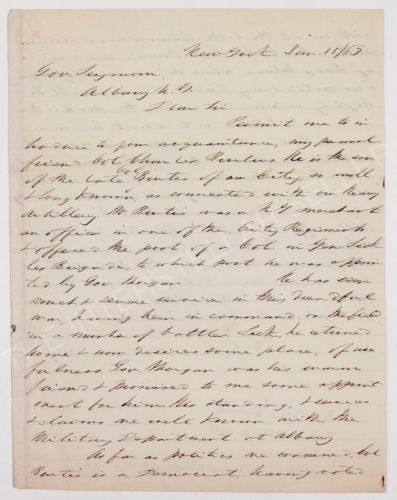 New York. Jan. 15/63
Gov Seymour
Albany N.Y.
Dear Sir
Permit me to in
troduce to your acquaintance, my personal
friend Col. Charles Burtis He is the son
of the late Burtis of our City, so well
& long known, as connected with our heavy
Artillery. Mr Burtis was a NY merchant
an officer in one of the City Regiments
& offered the post of a Col. in Gen Sick
les Brigade, to which post he was appoin
ted by Gov Morgan He has seen
much & severe service in this dreadful
war having been in command on the field
in a number of battles Sick, he returned
home & now desires some place, of use
fulness Gov Morgan was his warm
friend & promised to me some appoint
ment for him His standing, & services
& claims are well known with the
Military Department at Albany
As far as politics are concerned, Col
Burtis is a Democrat, having voted